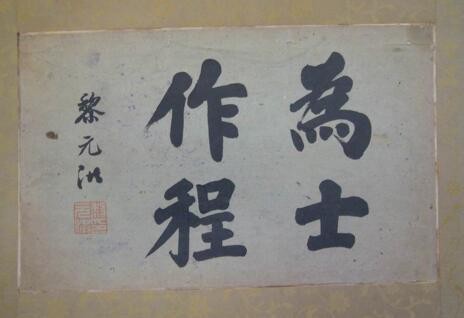 為士
作程
黎元洪